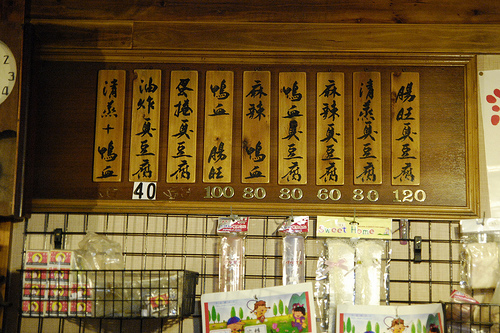 腸旺臭豆腐
清蒸臭豆腐
麻辣臭豆腐
鴨血臭豆腐
麻辣鴨血
鴨血腸旺
蛋捲臭豆腐
油炸臭豆腐
清蒸+鴨血
40 100 80 80 60 80 120
Sweet Home
2
3
4